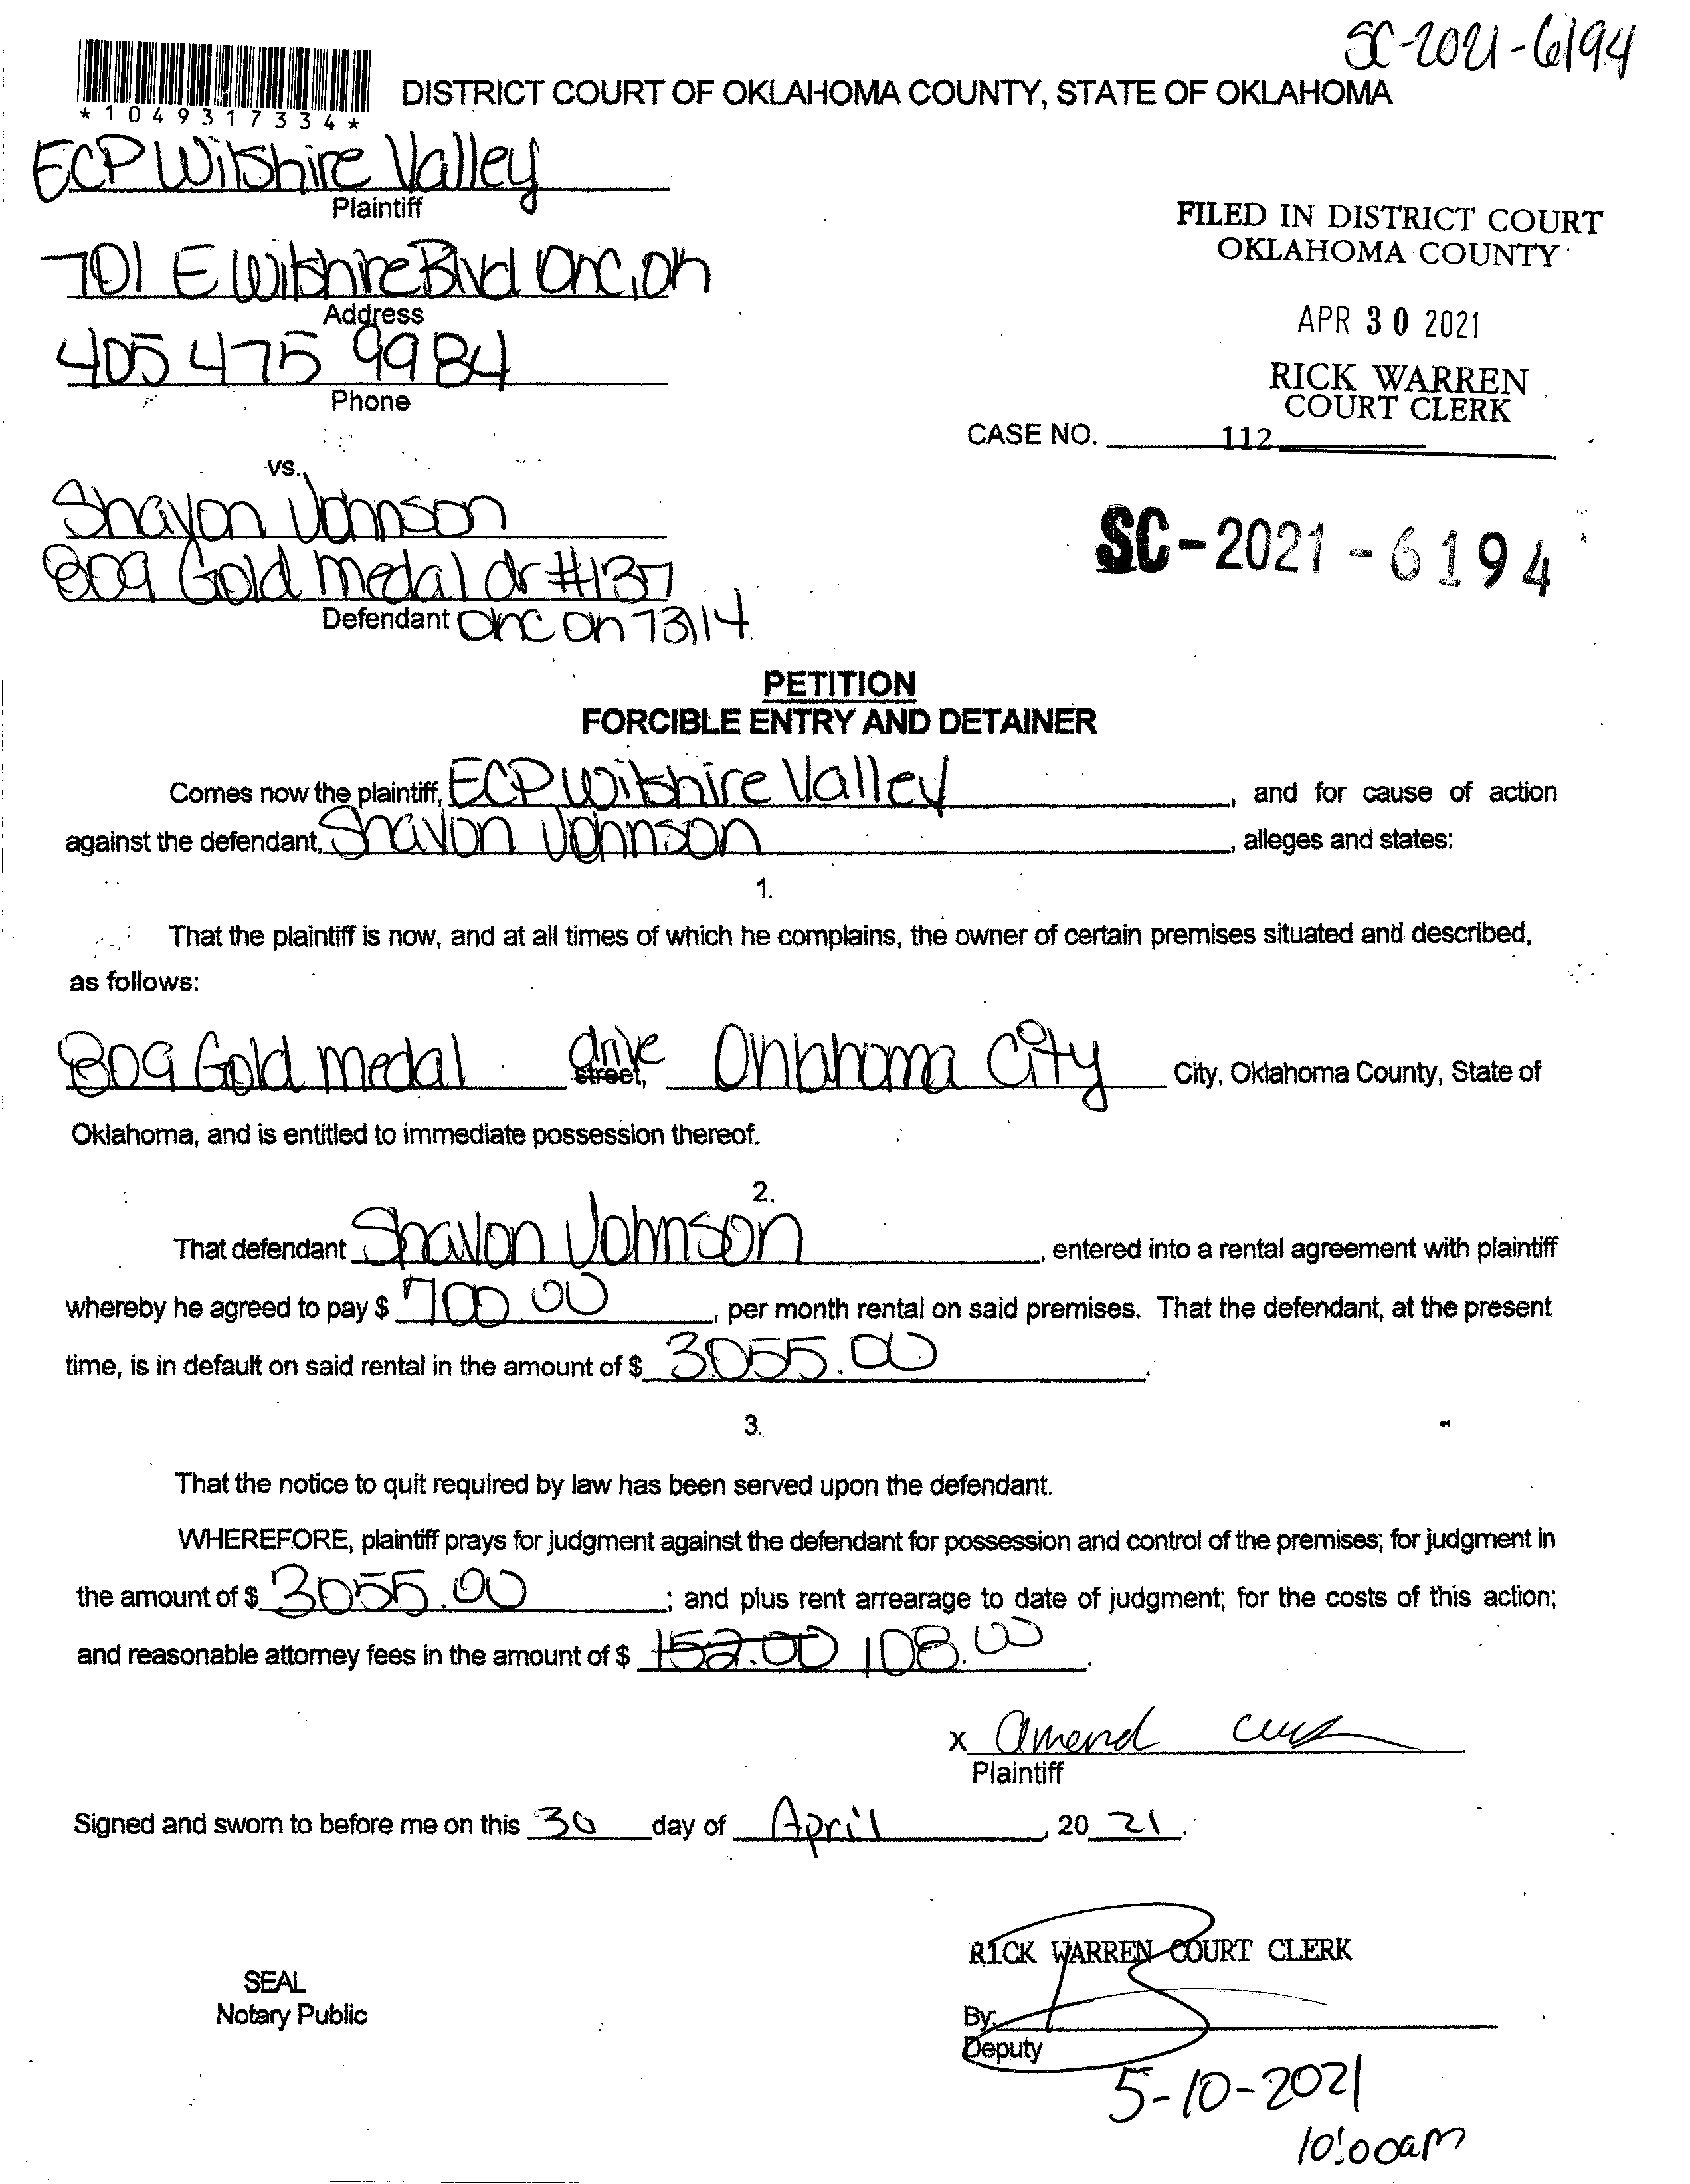 SC-2021-6194
*1049317334*
DISTRICT COURT OF OKLAHOMA COUNTY, STATE OF OKLAHOMA
ECP Wilshire Valley
Plaintiff
FILED IN DISTRICT COURT
OKLAHOMA COUNTY
701 E Wilshire Blvd OKC, OK
Address
APR 30 2021
405 475 9984
Phone
RICK WARREN
COURT CLERK
CASE NO. 112
vs.
Shavon Johnson
SC-2021-6194
809 Gold medal dr #137
Defendant OKC OK 73114
PETITION
FORCIBLE ENTRY AND DETAINER
Comes now the plaintiff, ECP Wilshire Valley, and for cause of action
against the defendant, Shavon Johnson, alleges and states:
1.
That the plaintiff is now, and at all times of which he complains, the owner of certain premises situated and described,
as follows:
809 Gold medal drive street, Oklahoma City City, Oklahoma County, State of
Oklahoma, and is entitled to immediate possession thereof.
2.
That defendant Shavon Johnson, entered into a rental agreement with plaintiff
whereby he agreed to pay $ 700.00, per month rental on said premises. That the defendant, at the present
time, is in default on said rental in the amount of $ 3055.00.
3.
That the notice to quit required by law has been served upon the defendant.
WHEREFORE, plaintiff prays for judgment against the defendant for possession and control of the premises; for judgment in
the amount of $ 3055.00; and plus rent arrearage to date of judgment; for the costs of this action;
and reasonable attorney fees in the amount of $ 152.00 108.00.
x
Plaintiff
Signed and sworn to before me on this 30 day of April, 20 21.
RICK WARREN COURT CLERK
SEAL
Notary Public
By:
Deputy
5-10-2021
10:00am